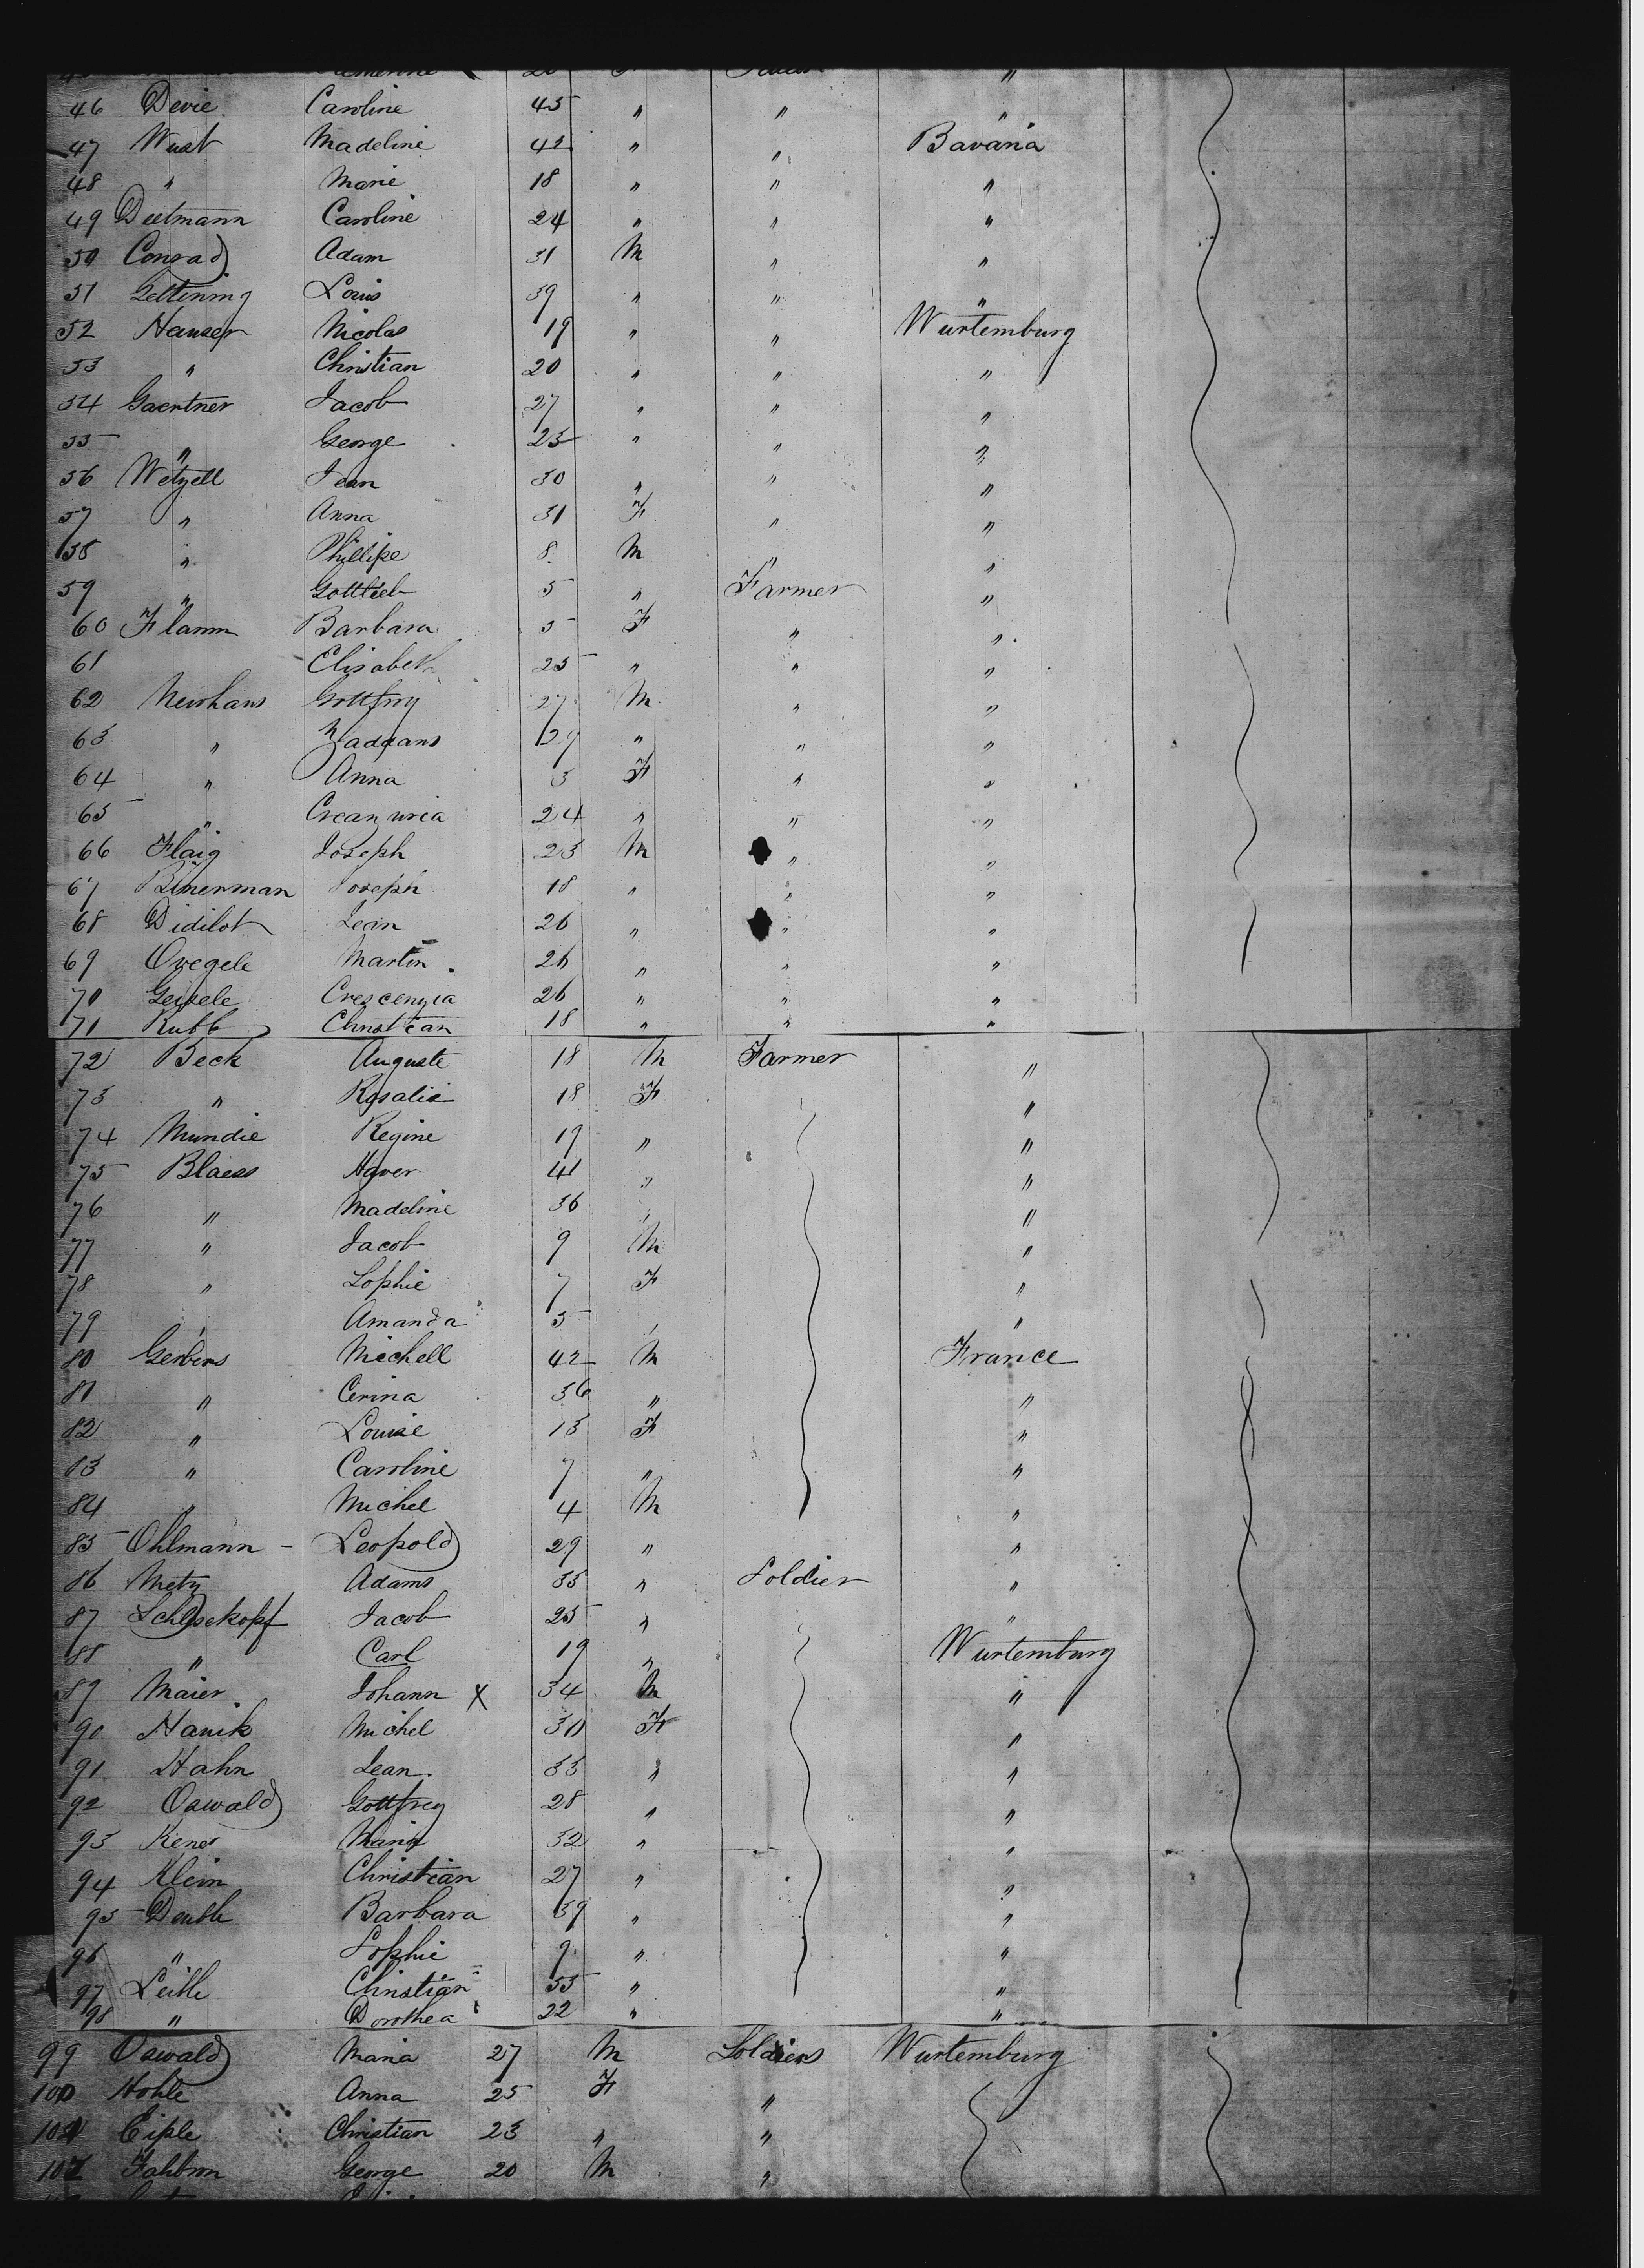 46 Devie Caroline 45 " " "
47 Wust Madeline 42 " " Bavaria
48 " Marie 18 " " "
49 Dietmann Caroline 24 " " "
50 Conrad Adam 31 M " "
51 Gettening Louis 39 " " "
52 Hauser Nicolas 19 " " Wurtemburg
53 " Christian 20 " " "
54 Gaertner Jacob 27 " " "
55 " George 25 " " "
56 Wetzell Jean 30 " " "
57 " Anna 31 F " "
58 " Phillipe 8 M " "
59 " Gottlieb 5 " Farmer "
60 Flamm Barbara 5 F " "
61 Elisabeth 25 " " "
62 Newhans Gottfroy 27 M " "
63 " 29 " " "
64 " Anna 3 F " "
65 " 24 " " "
66 Flaig Joseph 23 M " "
67 Binerman Joseph 18 " " "
68 Didilot Jean 26 " " "
69 Ovegele Martin 26 " " "
70 Geisele Crescenzia 26 " " "
71 Rubb Christian 18 " " "
72 Beck Auguste 18 M Farmer "
73 " Rosalie 18 F "
74 Mundie Regine 19 " "
75 Blaess Xaver 41 " "
76 " Madeline 36 " "
77 " Jacob 9 M "
78 " Sophie 7 F "
79 " Amanda 5 " "
80 Gerbers Michell 42 M France
81 " Cerina 36 " "
82 " Louise 13 F "
83 " Caroline 7 " "
84 " Michel 4 M "
85 Ohlmann - Leopold 29 " "
86 Metz Adams 35 " Soldier "
87 Schlosekopf Jacob 25 " "
88 " Carl 19 " Wurtemburg
89 Maier Johann X 34 M "
90 Hanik Michel 30 F "
91 Hahn Jean 33 " "
92 Oswald Gottfrey 28 " "
93 Kener Maria 32 " "
94 Klein Christian 27 " "
95 Deuble Barbara 39 " "
96 " Sophie 9 " "
97 Leible Christian 35 " "
98 " Dorothea 22 " "
99 Oswald Maria 27 M Soldiers Wurtemburg
100 Hohle Anna 25 F "
101 Eiple Christian 23 " "
102 Fahbron George 20 M "